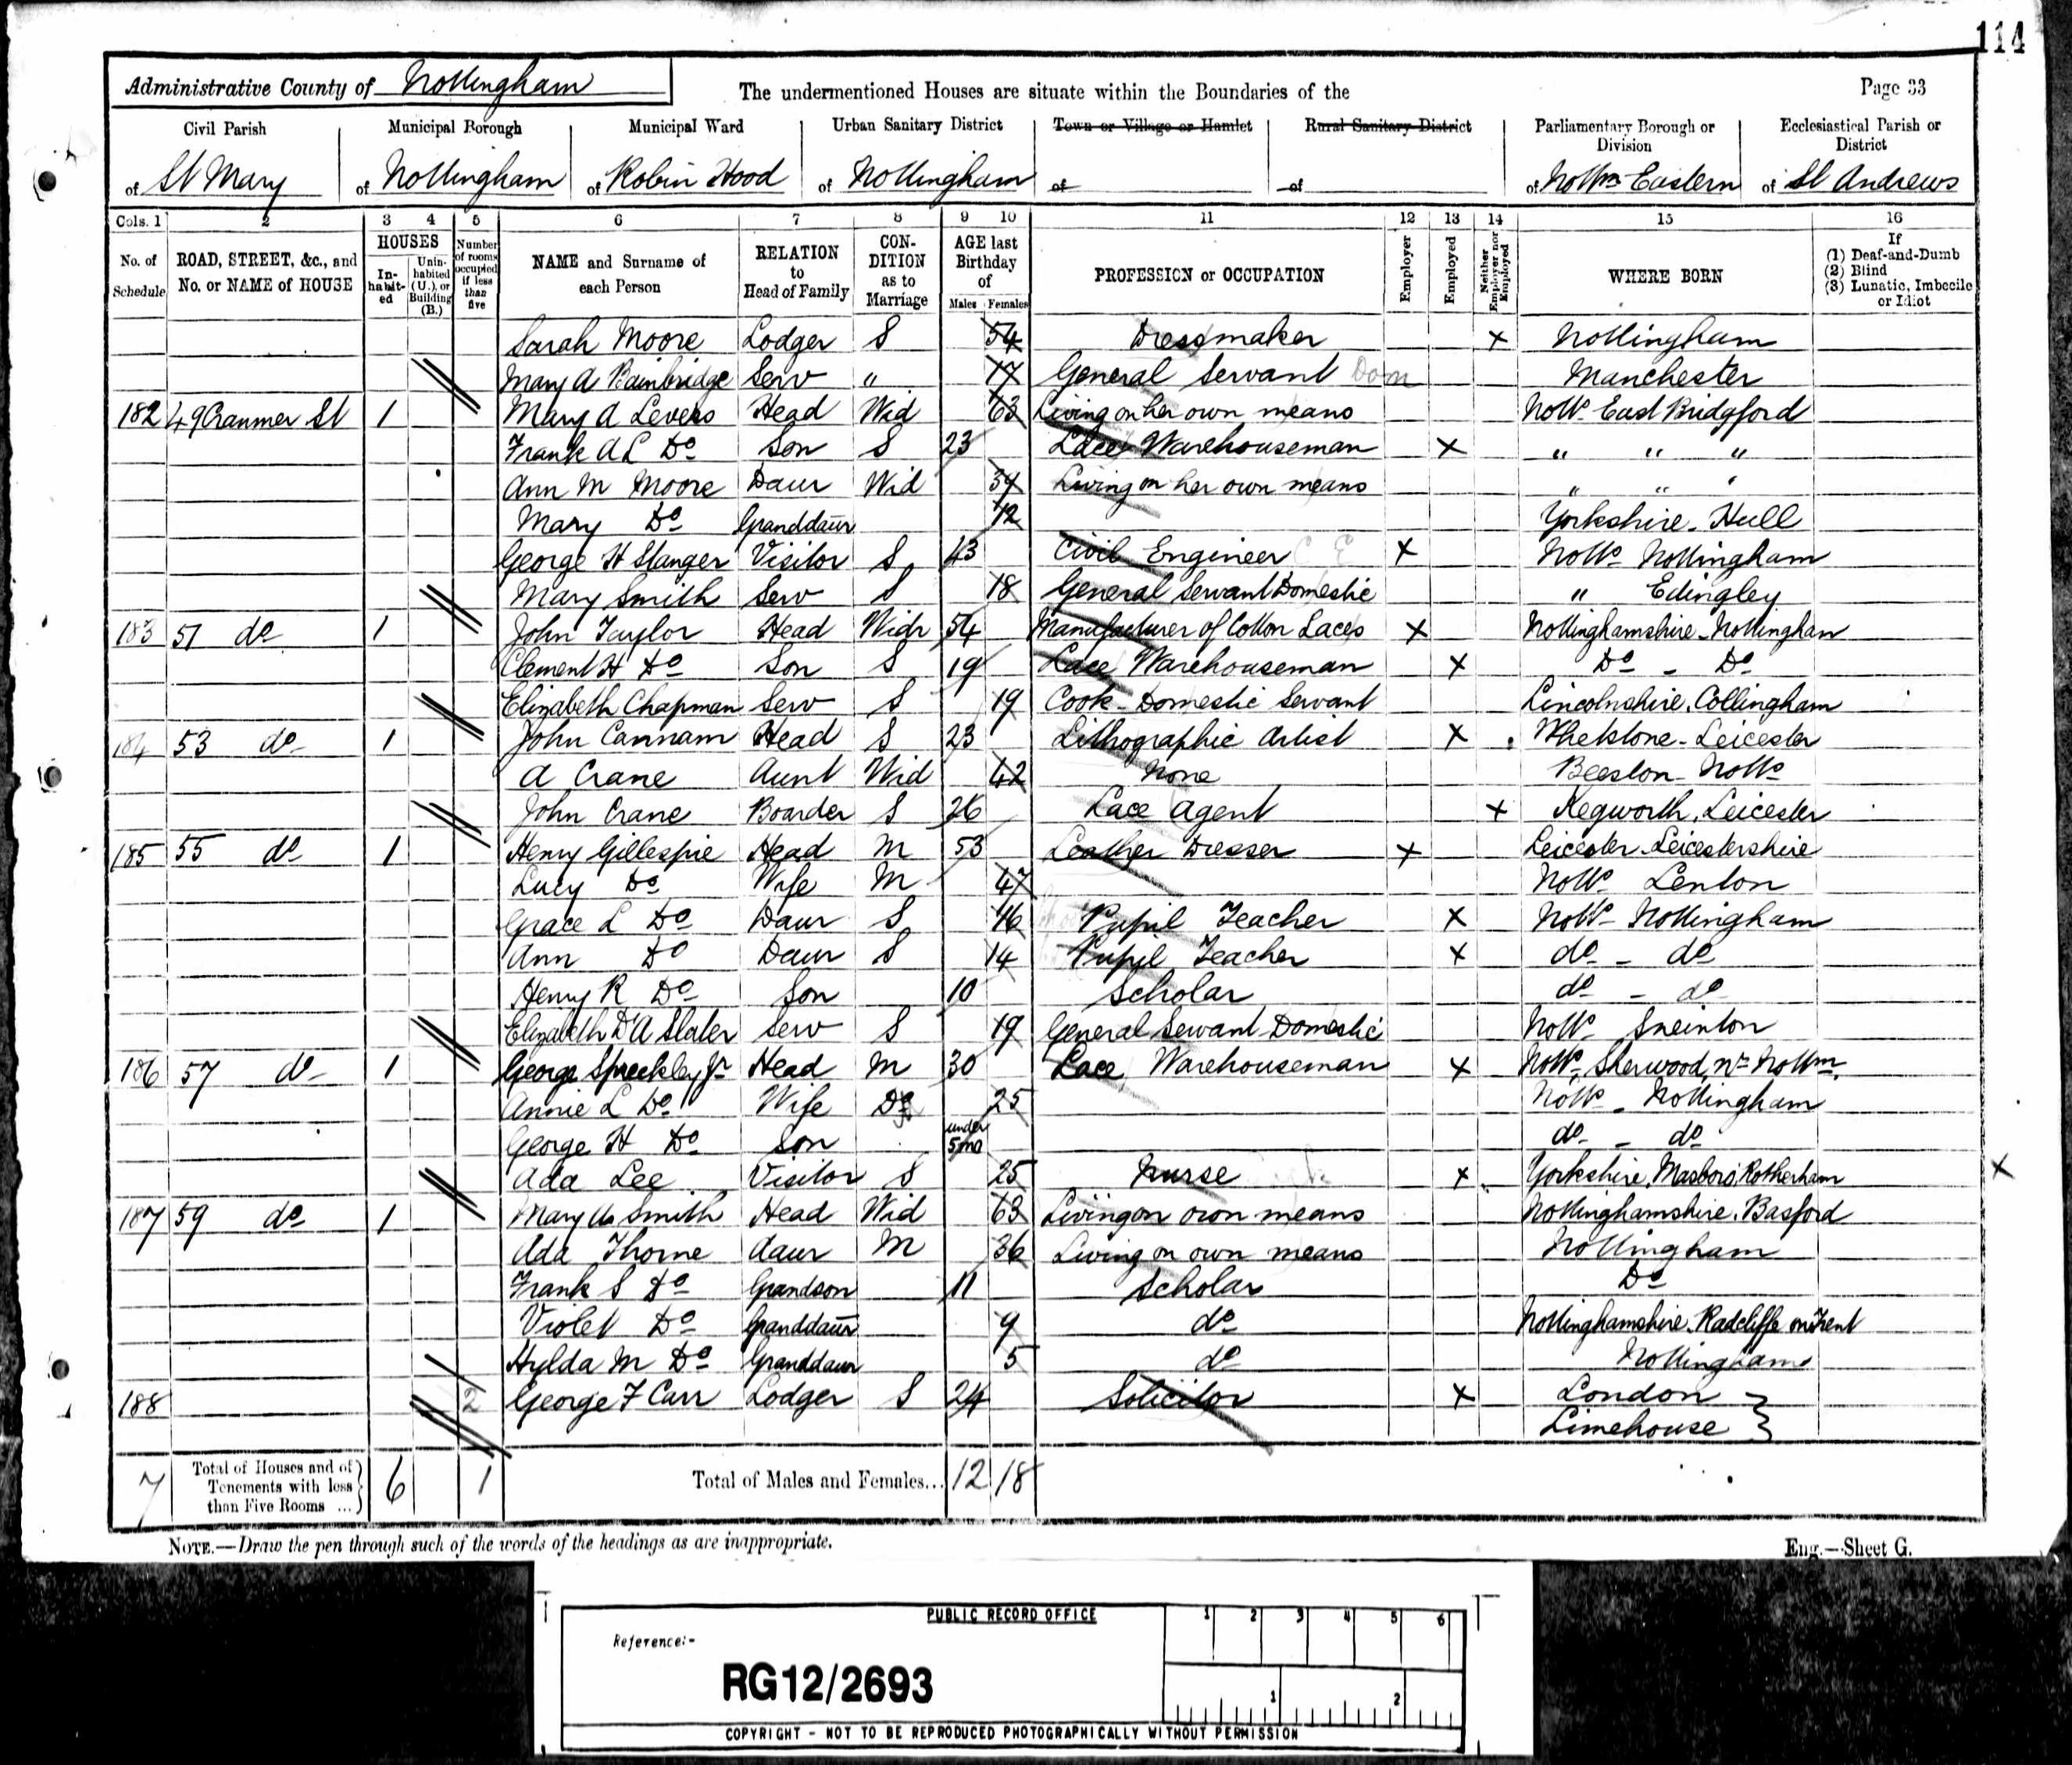 114
Administrative County of Nottingham The undermentioned Houses are situate within the Boundaries of the Page 33
Civil Parish Municipal Borough Municipal Ward Urban Sanitary District Town or Village or Hamlet Rural Sanitary District Parliamentary Borough or Division Ecclesiastical Parish or District
of St Mary of Nottingham of Robin Hood of Nottingham of of of Nottm Eastern of St Andrews
Cols. 1 2 3 4 5 6 7 8 9 10 11 12 13 14 15 16
No. of Schedule ROAD, STREET, &c., and No. or NAME of HOUSE HOUSES Inhabited Uninhabited (U.), or Building (B.) Number of rooms occupied if less than five NAME and Surname of each Person RELATION to Head of Family CONDITION as to Marriage AGE last Birthday of Males Females PROFESSION or OCCUPATION Employer Employed Neither Employer nor Employed WHERE BORN If (1) Deaf-and-Dumb (2) Blind (3) Lunatic, Imbecile or Idiot
Sarah Moore Lodger S 54 Dressmaker X Nottingham
Mary A Bainbridge Serv " 17 General Servant Dom Manchester
182 49 Cranmer St 1 Mary A Levers Head Wid 63 Living on her own means Notts East Bridgford
Frank A L Do Son S 23 Lace Warehouseman X " " "
Ann M Moore Daur Wid 39 Living on her own means " " "
Mary Do Granddaur 12 Yorkshire - Hull
George H Stanger Visitor S 43 Civil Engineer C E X Notts Nottingham
Mary Smith Serv S 18 General Servant Domestic " Edingley
183 51 do 1 John Taylor Head Widr 54 Manufacturer of Cotton Laces X Nottinghamshire - Nottingham
Clement H Do Son S 19 Lace Warehouseman X Do - Do
Elizabeth Chapman Serv S 19 Cook - Domestic Servant Lincolnshire, Collingham
184 53 do 1 John Cannam Head S 23 Lithographic Artist X Whetstone - Leicester
A Crane Aunt Wid 42 None Beeston - Notts
John Crane Boarder S 26 Lace Agent X Kegworth, Leicester
185 55 do 1 Henry Gillespie Head M 53 Leather Dresser X Leicester Leicestershire
Lucy Do Wife M 47 Notts Lenton
Grace L Do Daur S 16 Pupil Teacher X Notts - Nottingham
Ann Do Daur S 14 Pupil Teacher X do - do
Henry R Do Son 10 Scholar do - do
Elizabeth D'A Slater Serv S 19 General Servant Domestic Notts Sneinton
186 57 do 1 George Spreckley Jr Head M 30 Lace Warehouseman X Notts, Sherwood, nr Nottm
Annie L Do Wife Do 25 Notts - Nottingham
George H Do Son under 5 mo do - do
Ada Lee Visitor S 25 Nurse X Yorkshire, Masboro, Rotherham X
187 59 do 1 Mary A Smith Head Wid 63 Living on own means Nottinghamshire, Basford
Ada Thorne daur M 36 Living on own means Nottingham
Frank S Do Grandson 11 Scholar Do
Violet Do Granddaur 9 do Nottinghamshire, Radcliffe on Trent
Hylda M Do Granddaur 5 do Nottingham
188 2 George F Carr Lodger S 24 Solicitor X London
Limehouse
7 Total of Houses and of Tenements with less than Five Rooms ... 6 1 Total of Males and Females... 12 18
NOTE.—Draw the pen through such of the words of the headings as are inappropriate. Eng.—Sheet G.
PUBLIC RECORD OFFICE 1 2 3 4 5 6
Reference:-
RG12/2693
1 2
COPYRIGHT - NOT TO BE REPRODUCED PHOTOGRAPHICALLY WITHOUT PERMISSION